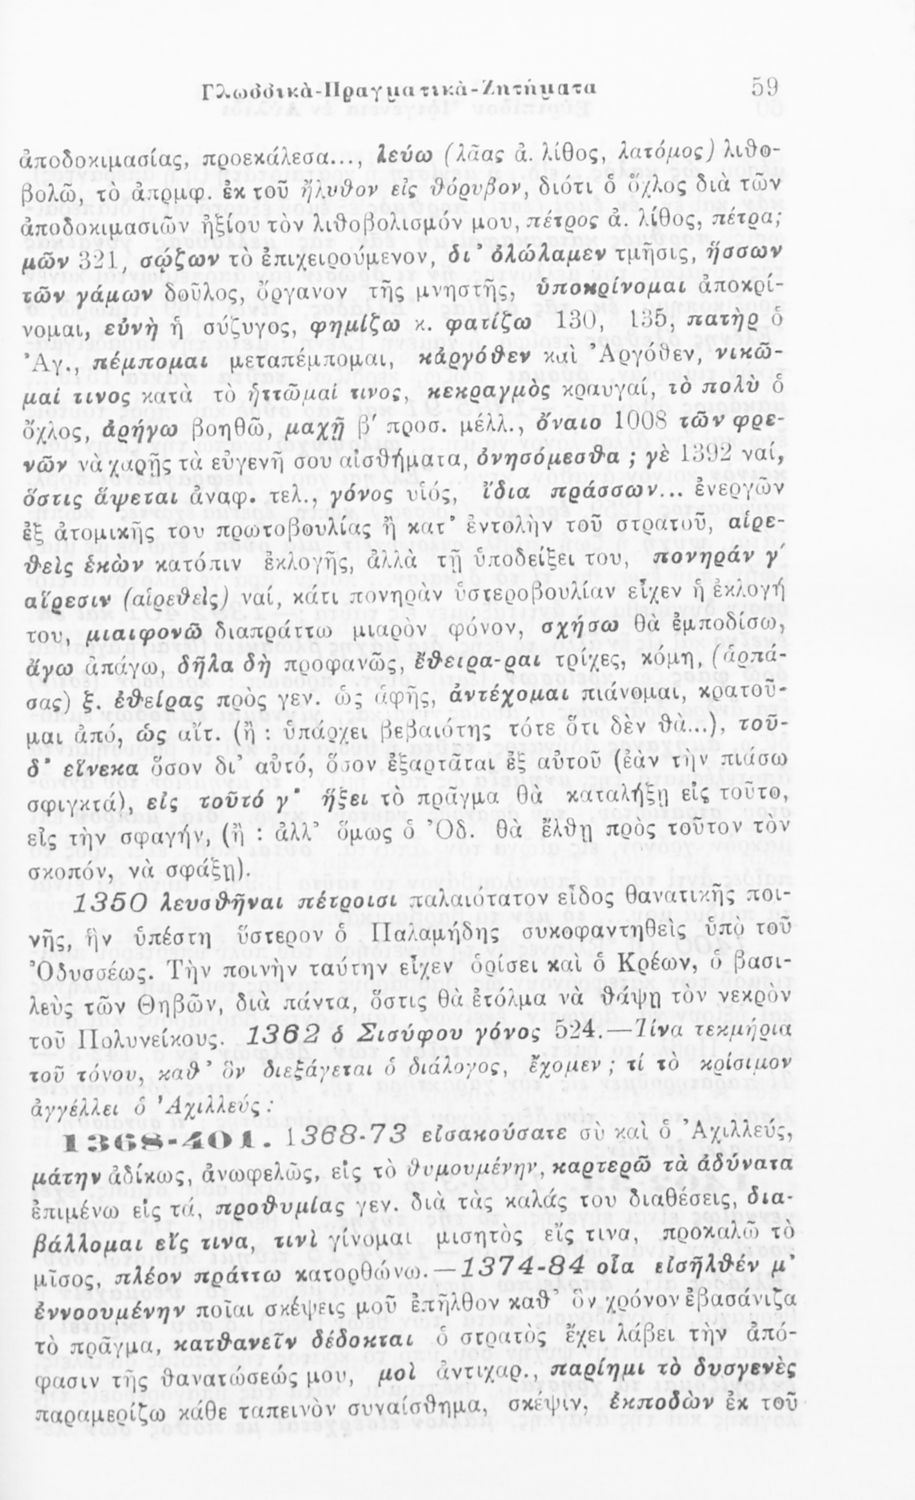 Γλωσσικὰ-Πραγματικὰ-Ζητήματα 59
ἀποδοκιμασίας, προεκάλεσα..., λεύω (λᾶας ἀ. λίθος, λατόμος) λιθο-
βολῶ, τὸ ἀπρμφ. ἐκ τοῦ ἤλυθον εἰς θόρυβον, διότι ὁ ὄχλος διὰ τῶν
ἀποδοκιμασιῶν ἠξίου τὸν λιθοβολισμόν μου, πέτρος ἀ. λίθος, πέτρα;
μῶν 321, σῴζων τὸ ἐπιχειρούμενον, δι' ὀλώλαμεν τμῆσις, ἥσσων
τῶν γάμων δοῦλος, ὄργανον τῆς μνηστῆς, ὑποκρίνομαι ἀποκρί-
νομαι, εὐνὴ ἡ σύζυγος, φημίζω κ. φατίζω 130, 135, πατὴρ ὁ
Ἀγ., πέμπομαι μεταπέμπομαι, κἀργόθεν καὶ Ἀργόθεν, νικῶ-
μαί τινος κατὰ τὸ ἡττῶμαί τινος, κεκραγμὸς κραυγαί, τὸ πολὺ ὁ
ὄχλος, ἀρήγω βοηθῶ, μαχῇ β' προσ. μέλλ., ὄναιο 1008 τῶν φρε-
νῶν νὰ χαρῇς τὰ εὐγενῆ σου αἰσθήματα, ὀνησόμεσθα ; γὲ 1392 ναί,
ὅστις ἅψεται ἀναφ. τελ., γόνος υἱός, ἴδια πράσσων... ἐνεργῶν
ἐξ ἀτομικῆς του πρωτοβουλίας ἢ κατ' ἐντολὴν τοῦ στρατοῦ, αἱρε-
θεὶς ἑκὼν κατόπιν ἐκλογῆς, ἀλλὰ τῇ ὑποδείξει του, πονηράν γ'
αἵρεσιν (αἱρεθεὶς) ναί, κάτι πονηρὰν ὑστεροβουλίαν εἶχεν ἡ ἐκλογή
του, μιαιφονῶ διαπράττω μιαρὸν φόνον, σχήσω θὰ ἐμποδίσω,
ἄγω ἀπάγω, δῆλα δὴ προφανῶς, ἔθειρα-ραι τρίχες, κόμη, (ἁρπά-
σας) ξ. ἐθείρας πρὸς γεν. ὡς ἁφῆς, ἀντέχομαι πιάνομαι, κρατοῦ-
μαι ἀπό, ὡς αἴτ. (ἢ : ὑπάρχει βεβαιότης τότε ὅτι δὲν θὰ...), τοῦ-
δ' εἵνεκα ὅσον δι' αὐτό, ὅσον ἐξαρτᾶται ἐξ αὐτοῦ (ἐὰν τὴν πιάσω
σφιγκτά), εἰς τοῦτό γ' ἥξει τὸ πρᾶγμα θὰ καταλήξῃ εἰς τοῦτο,
εἰς τὴν σφαγήν, (ἢ : ἀλλ' ὅμως ὁ Ὀδ. θὰ ἔλθῃ πρὸς τοῦτον τὸν
σκοπόν, νὰ σφάξῃ).
1350 λευσθῆναι πέτροισι παλαιότατον εἶδος θανατικῆς ποι-
νῆς, ἣν ὑπέστη ὕστερον ὁ Παλαμήδης συκοφαντηθεὶς ὑπὸ τοῦ
Ὀδυσσέως. Τὴν ποινὴν ταύτην εἶχεν ὁρίσει καὶ ὁ Κρέων, ὁ βασι-
λεὺς τῶν Θηβῶν, διὰ πάντα, ὅστις θὰ ἐτόλμα νὰ θάψῃ τὸν νεκρὸν
τοῦ Πολυνείκους. 1362 ὁ Σισύφου γόνος 524.—Τίνα τεκμήρια
τοῦ τόνου, καθ' ὃν διεξάγεται ὁ διάλογος, ἔχομεν ; τί τὸ κρίσιμον
ἀγγέλλει ὁ Ἀχιλλεύς :
1368-401. 1368-73 εἰσακούσατε σὺ καὶ ὁ Ἀχιλλεύς,
μάτην ἀδίκως, ἀνωφελῶς, εἰς τὸ θυμουμένην, καρτερῶ τὰ ἀδύνατα
ἐπιμένω εἰς τά, προθυμίας γεν. διὰ τὰς καλάς του διαθέσεις, δια-
βάλλομαι εἴς τινα, τινὶ γίνομαι μισητὸς εἴς τινα, προκαλῶ τὸ
μῖσος, πλέον πράττω κατορθώνω.—1374-84 οἷα εἰσῆλθέν μ'
ἐννοουμένην ποῖαι σκέψεις μοῦ ἐπῆλθον καθ' ὃν χρόνον ἐβασάνιζα
τὸ πρᾶγμα, κατθανεῖν δέδοκται ὁ στρατὸς ἔχει λάβει τὴν ἀπό-
φασιν τῆς θανατώσεώς μου, μοὶ ἀντιχαρ., παρίημι τὸ δυσγενὲς
παραμερίζω κάθε ταπεινὸν συναίσθημα, σκέψιν, ἐκποδὼν ἐκ τοῦ